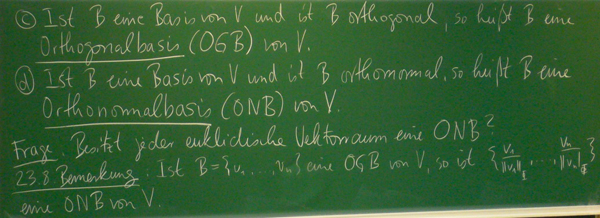 (c) Ist B eine Basis von V und ist B orthogonal, so heißt B eine
Orthogonalbasis (OGB) von V.
(d) Ist B eine Basis von V und ist B orthonormal, so heißt B eine
Orthonormalbasis (ONB) von V.
Frage: Besitzt jeder euklidische Vektorraum eine ONB?
23.8. Bemerkung: Ist B = {v₁, ..., vₙ} eine OGB von V, so ist {v₁/||v₁||, ..., vₙ/||vₙ||}
eine ONB von V.